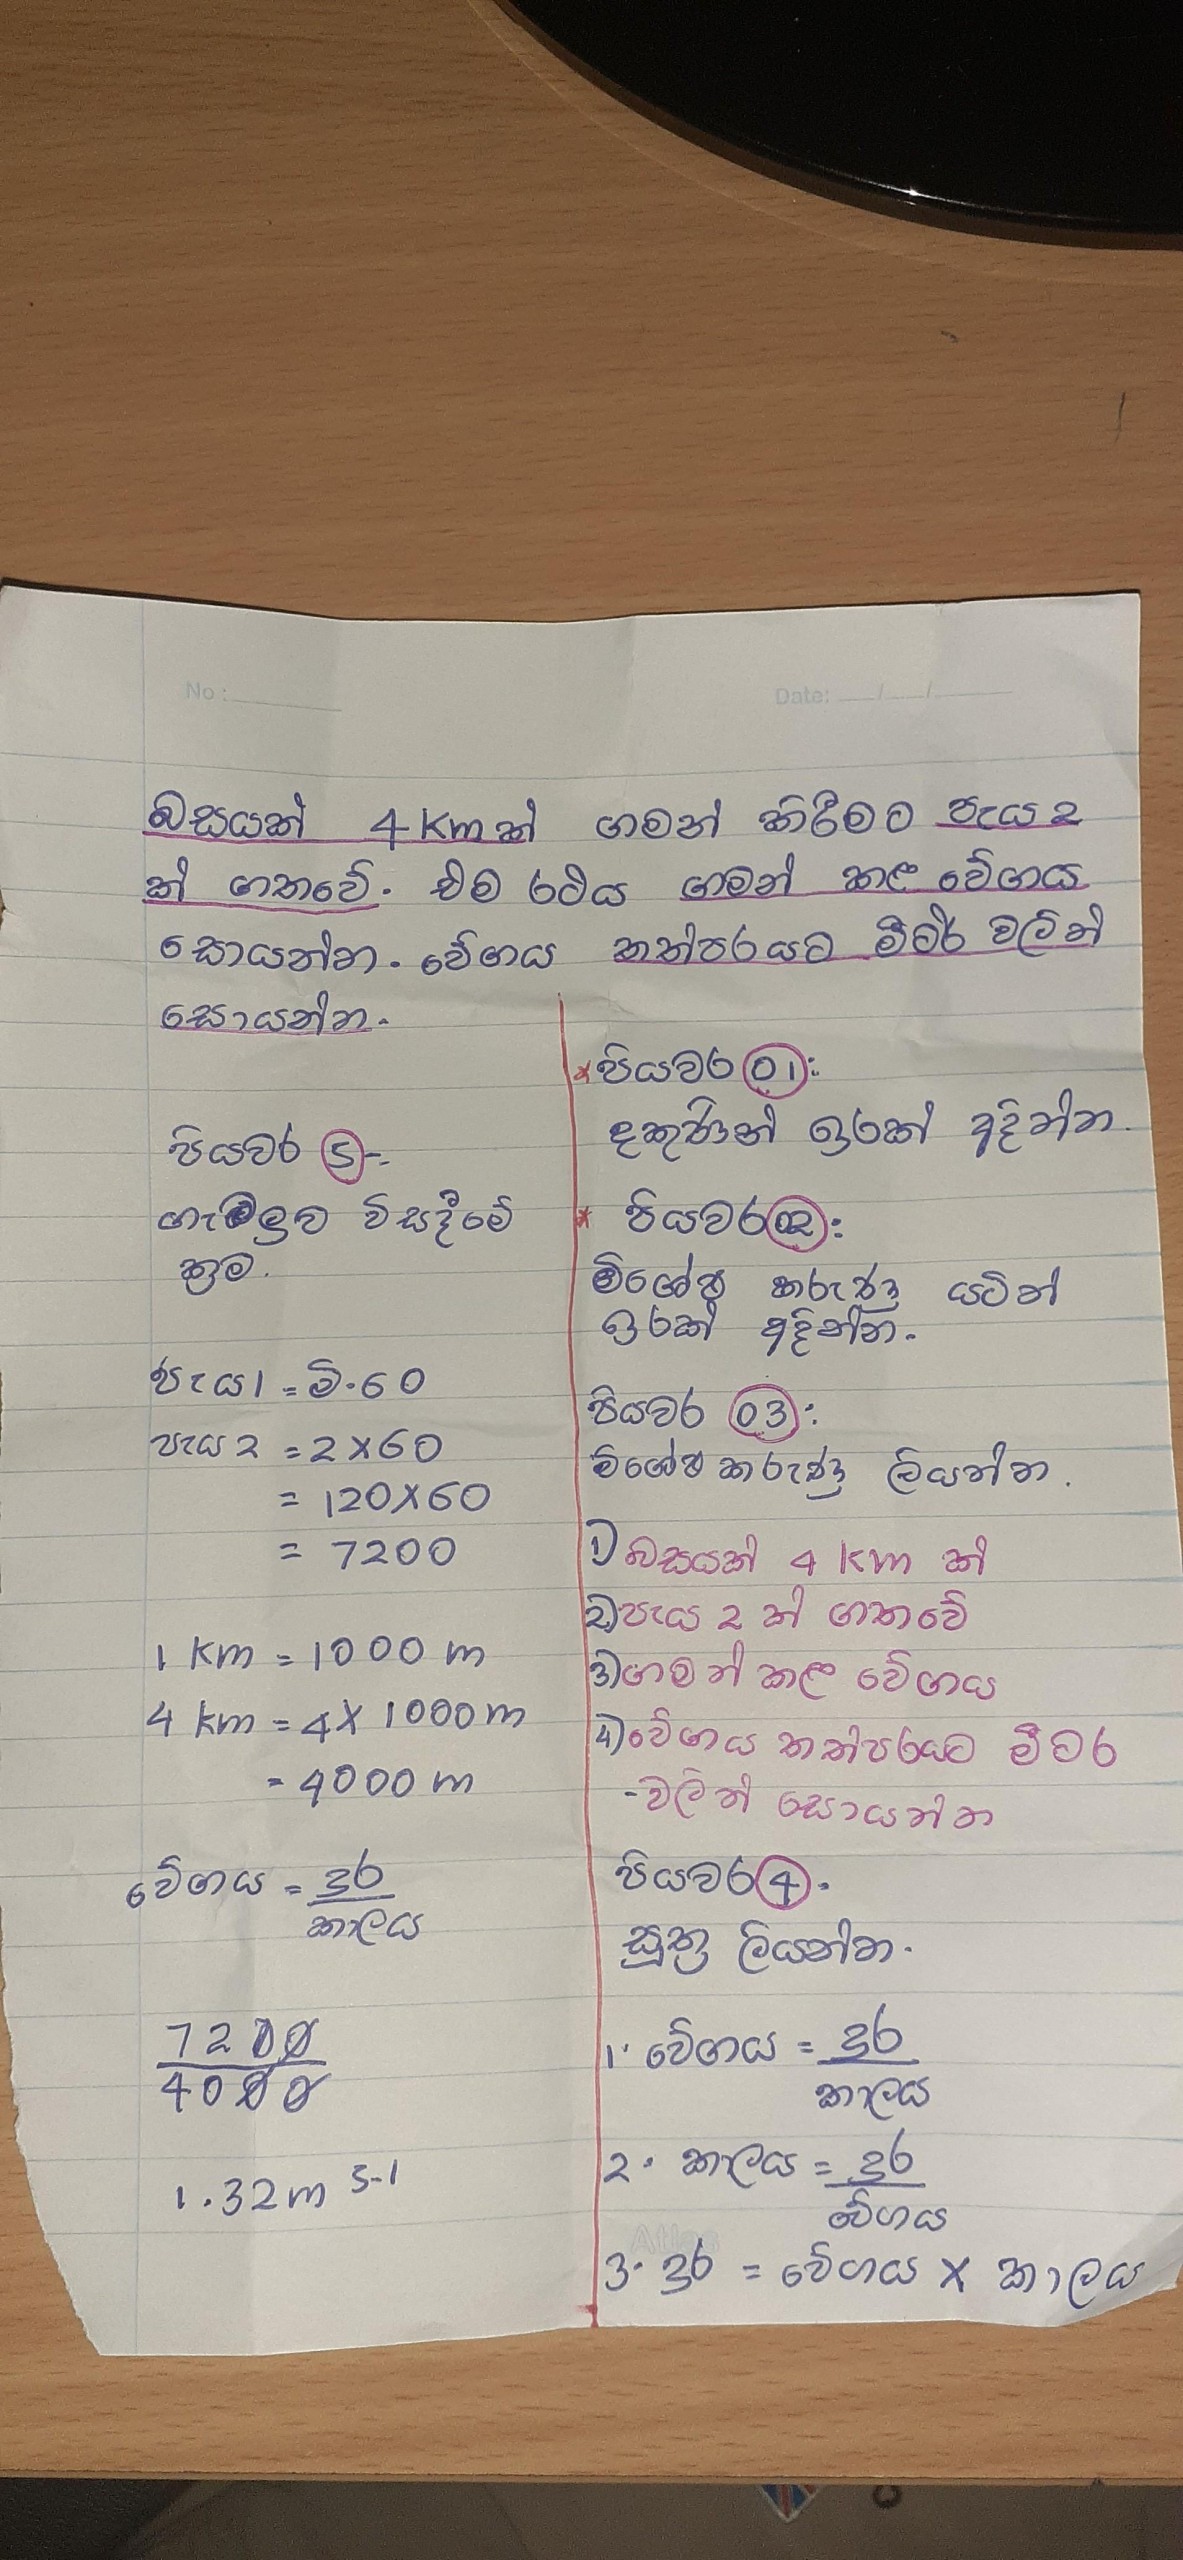 No :
Date: __/__/__
බසයක් 4 Kmක් ගමන් කිරීමට පැය 2
ක් ගතවේ. එම රථය ගමන් කළ වේගය
සොයන්න. වේගය තත්පරයට මීටර් වලින්
සොයන්න.
පියවර 5-
ගැටළුව විසදීමේ
ක්‍රම.
පැය 1 = මි.60
පැය 2 = 2×60
= 120×60
= 7200
1 Km = 1000 m
4 km = 4 × 1000 m
= 4000 m
වේගය = දුර
කාලය
7200
4000
1.32 m s-1
* පියවර 01:
දකුණින් ඉරක් අදින්න.
* පියවර 02:
විශේෂ කරුණු යටින්
ඉරක් අදින්න.
පියවර 03:
විශේෂ කරුණු ලියන්න.
1) බසයක් 4 km ක්
2) පැය 2 ක් ගතවේ
3) ගමන් කළ වේගය
4) වේගය තත්පරයට මීටර
-වලින් සොයන්න
පියවර 4.
සූත්‍ර ලියන්න.
1. වේගය = දුර
කාලය
2. කාලය = දුර
වේගය
Atlas
3. දුර = වේගය × කාලය